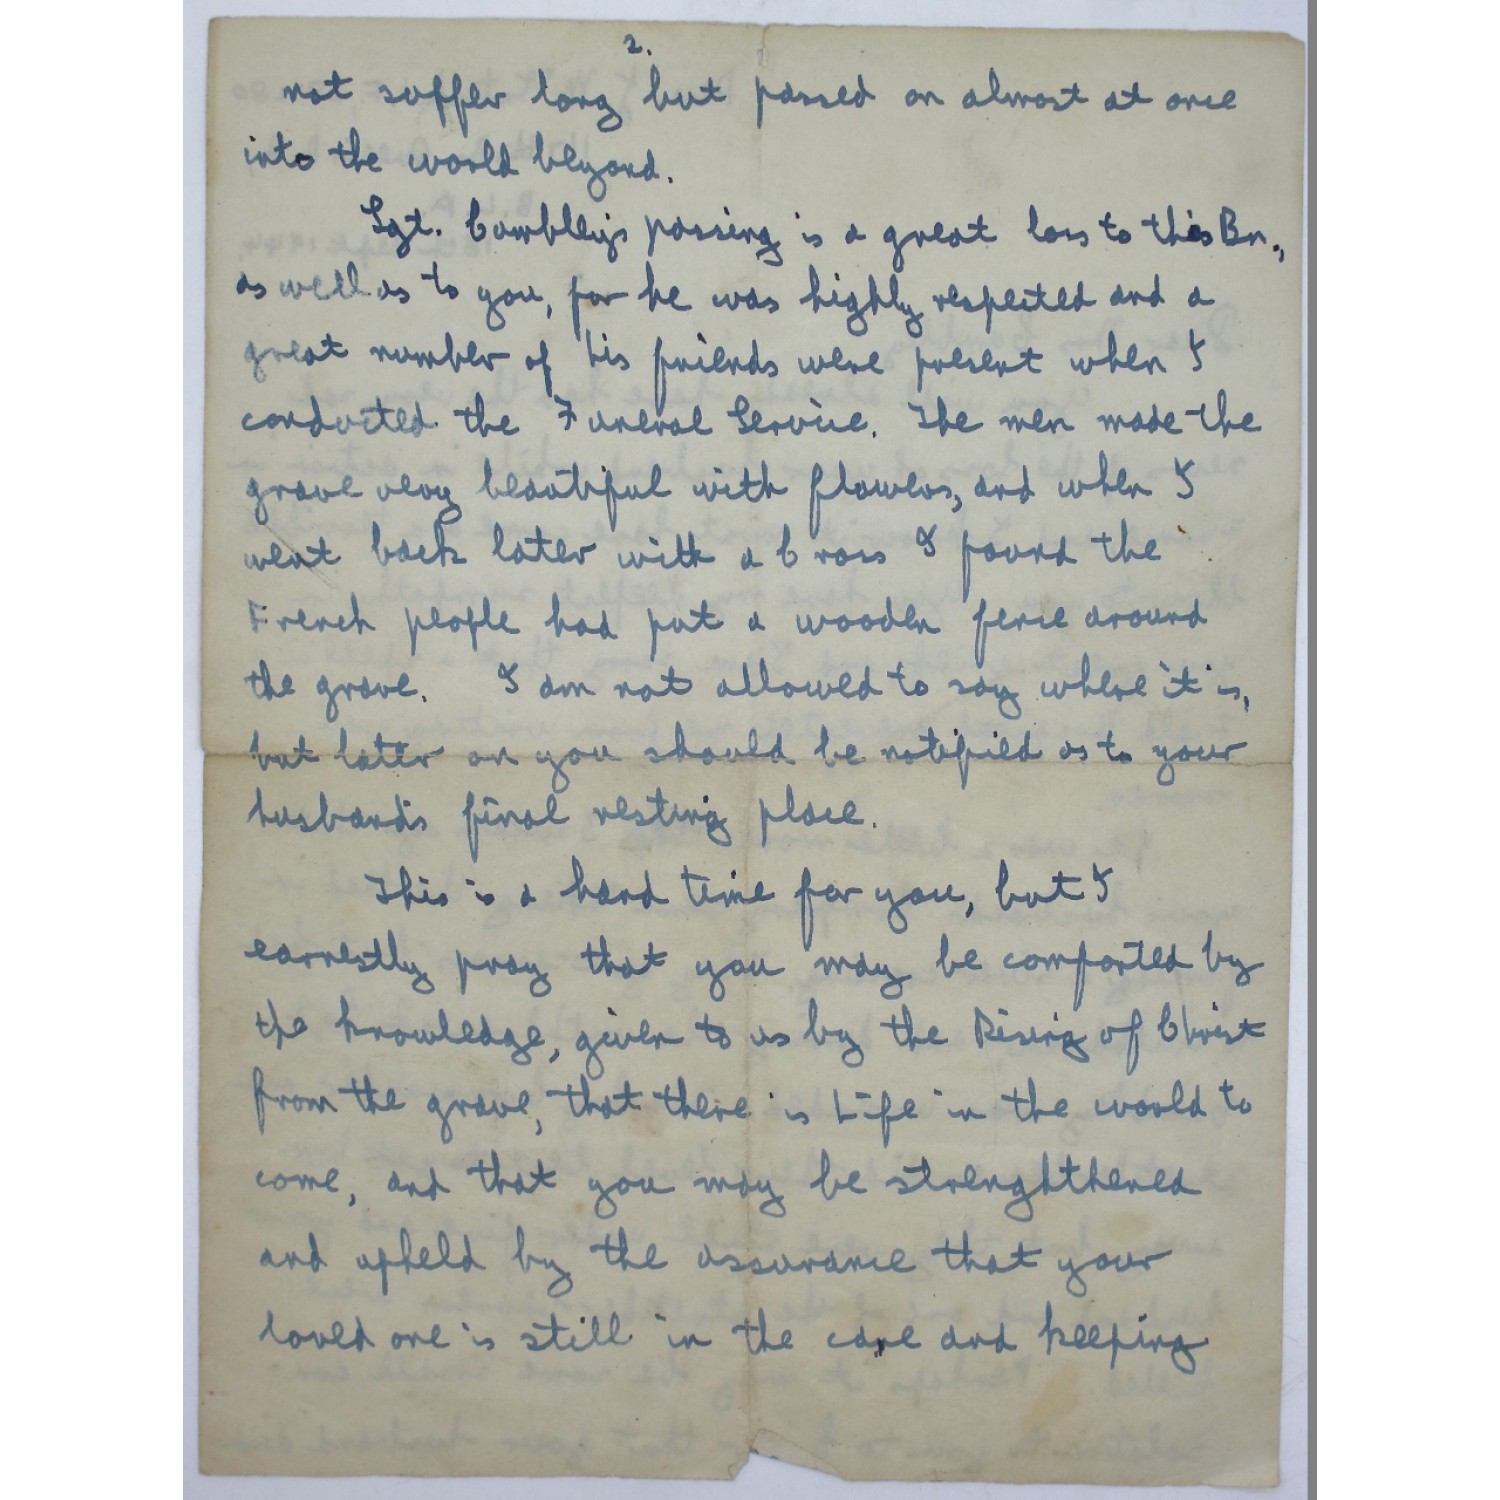 2.
not suffer long but passed on almost at once
into the world beyond.
Sgt. Cumbley's passing is a great loss to this Bn.,
as well as to you, for he was highly respected and a
great number of his friends were present when I
conducted the Funeral Service. The men made the
grave very beautiful with flowers, and when I
went back later with a Cross I found the
French people had put a wooden fence around
the grave. I am not allowed to say where it is,
but later on you should be notified as to your
husband's final resting place.
This is a hard time for you, but I
earnestly pray that you may be comforted by
the knowledge, given to us by the Rising of Christ
from the grave, that there is Life in the world to
come, and that you may be strenghthened
and upheld by the assurance that your
loved one is still in the care and keeping